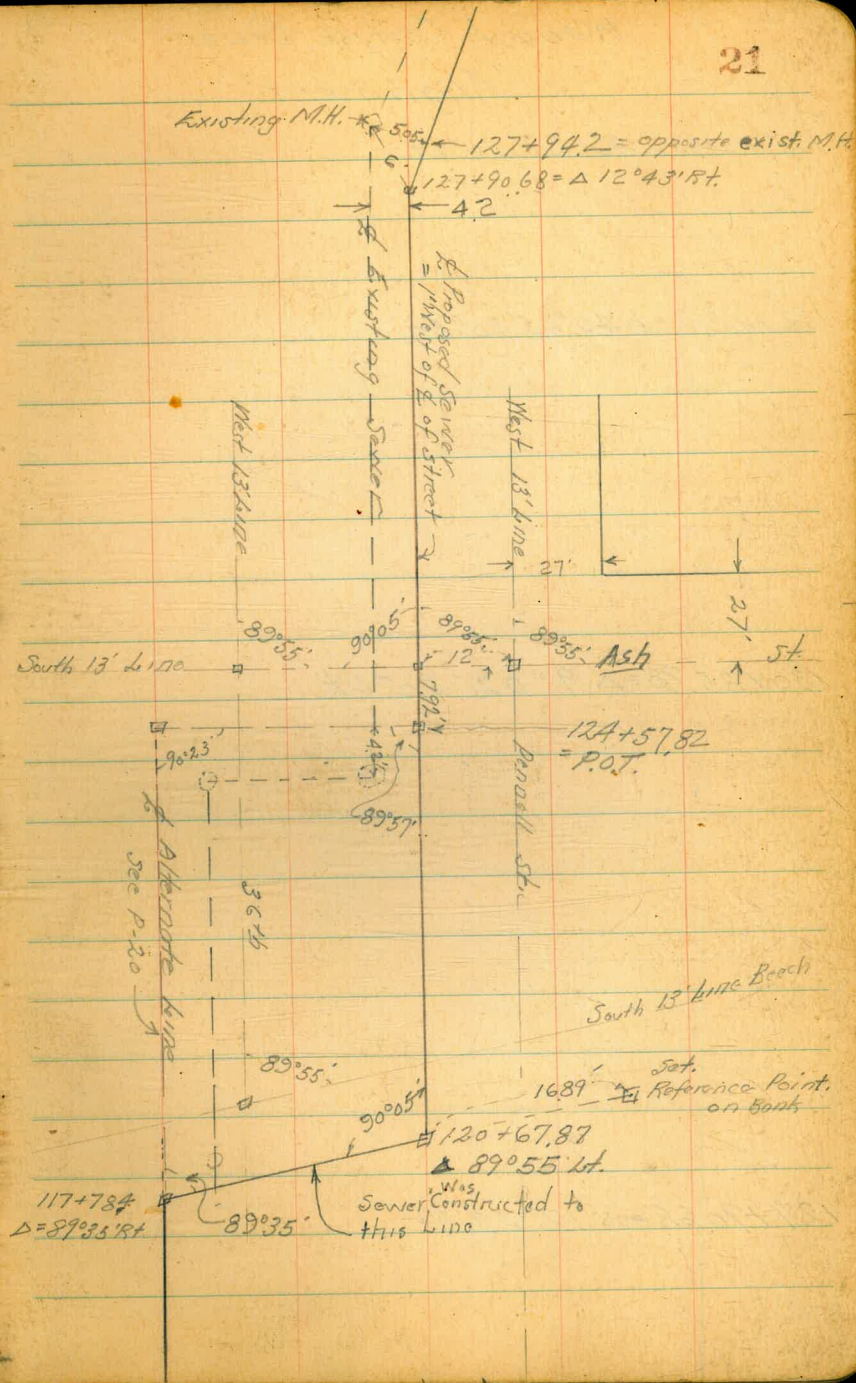 21
Existing M.H.
5.05
127+94.2 = opposite exist. M.H.
6
127+90.68 = Δ 12°43' Rt.
4.2
℄ Existing Sewer
℄ Proposed Sewer
= 1' West of ℄ of Street
West 13' Line
West 13' Line
27'
27'
89°55'
90°05'
89°55'
89°55'
South 13' Line
12
Ash St.
7.92'
124+57.82
= P.O.T.
90°23'
89°57'
Pennell St.
℄ Alternate Line
See P-20
36th
South 13' Line Beech
89°55'
90°05'
16.89'
Set.
Reference Point.
on Bank
120+67.87
Δ 89°55' Lt.
117+78.4
Δ=89°35' Rt
89°35'
Was
Sewer Constructed to
this Line